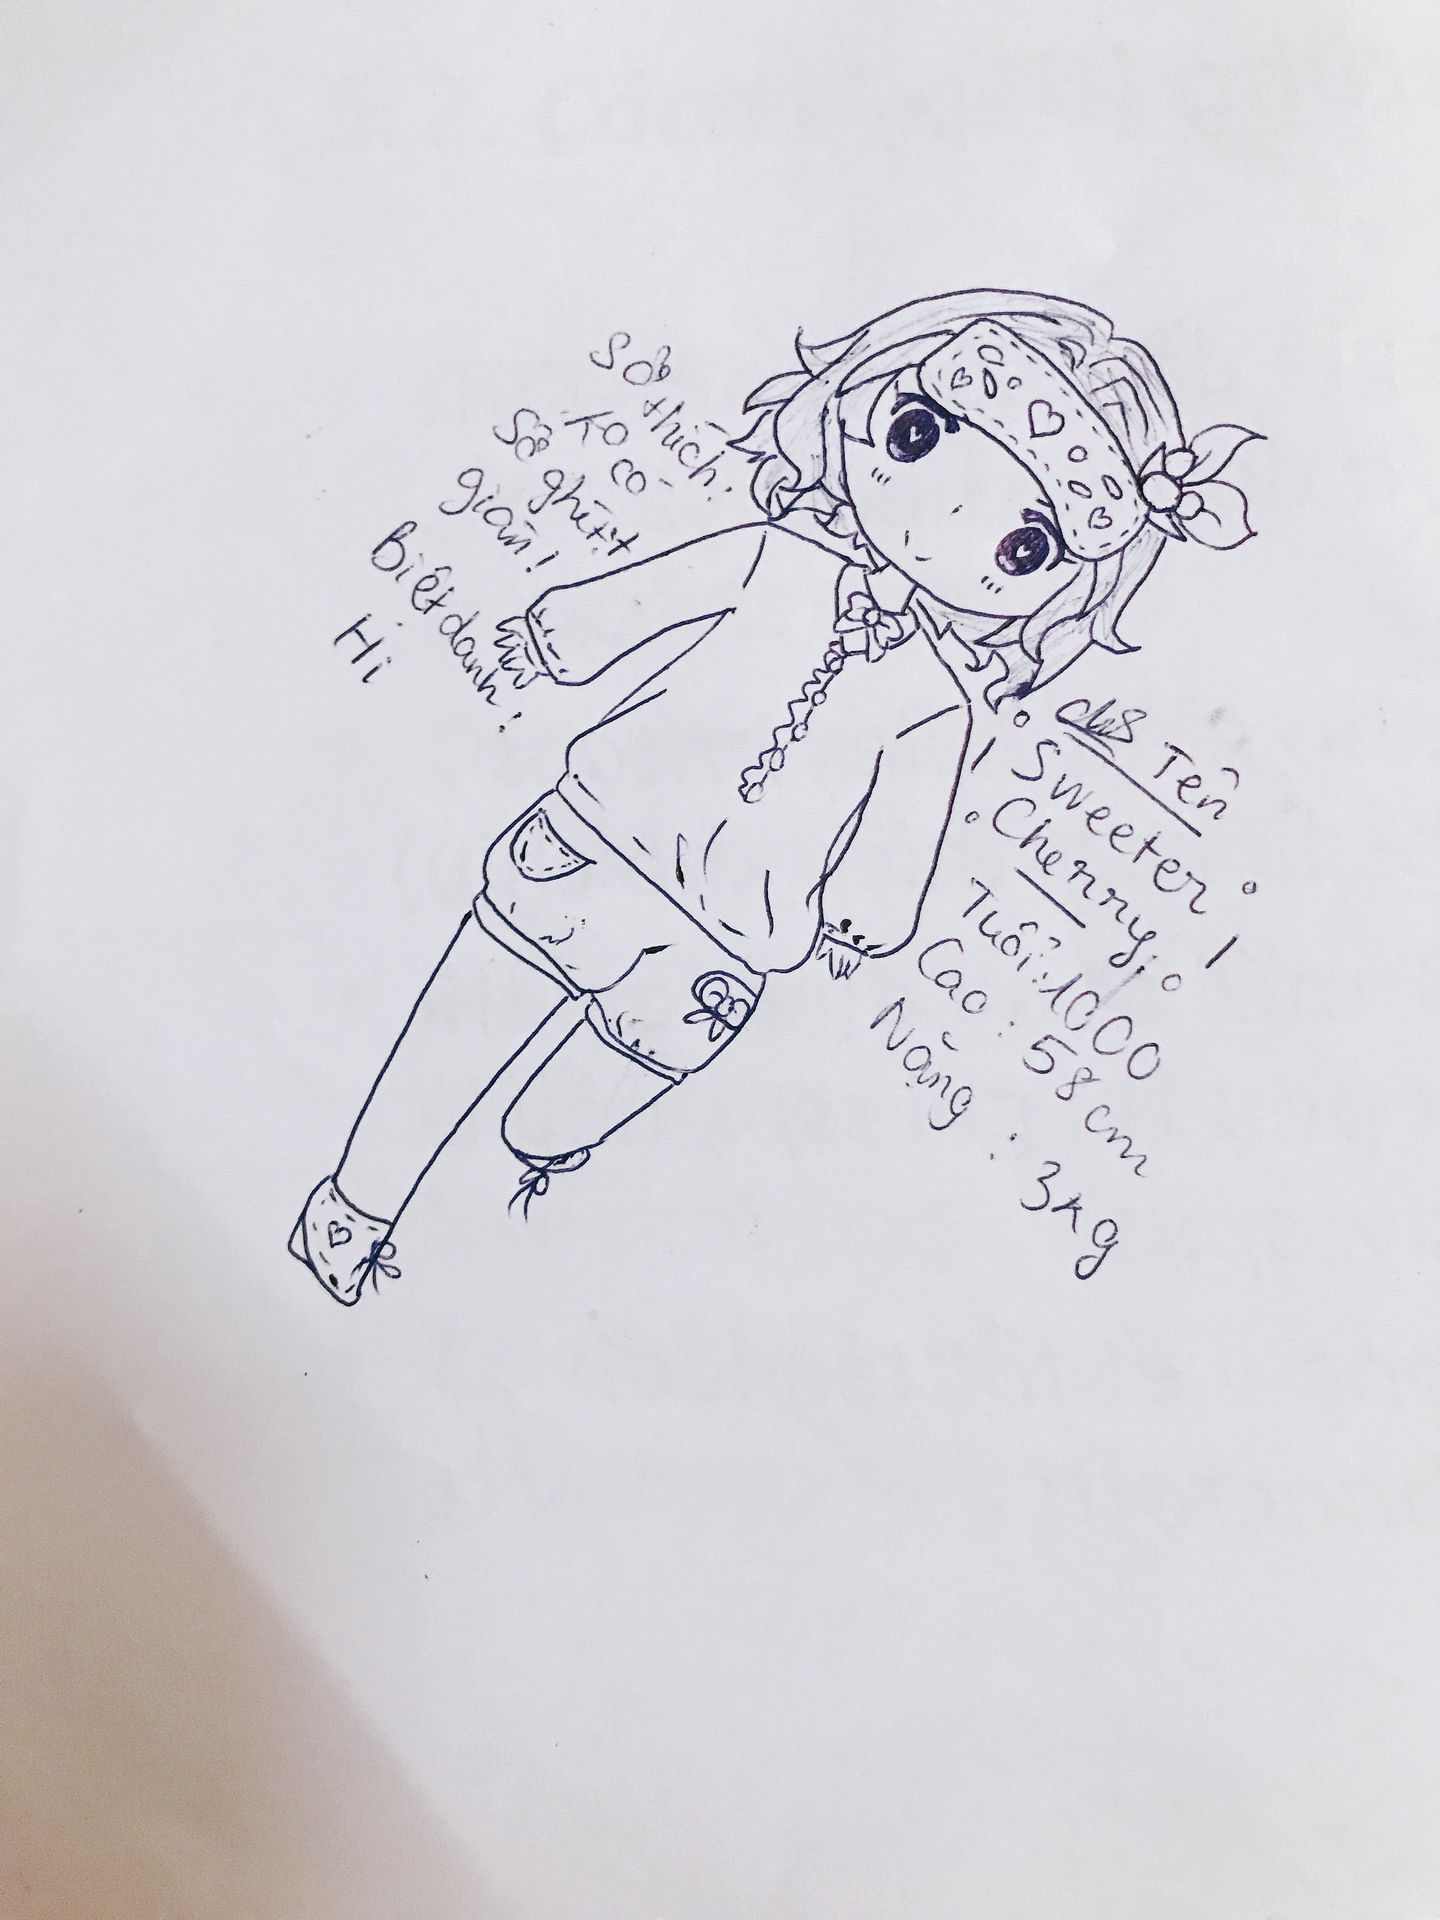 Sở thích:
Ko có
Sở ghét:
gián!
Biệt danh:
Hi
Tên
Sweeter
Cherry
Tuổi: 1000
Cao: 58 cm
Nặng: 3kg